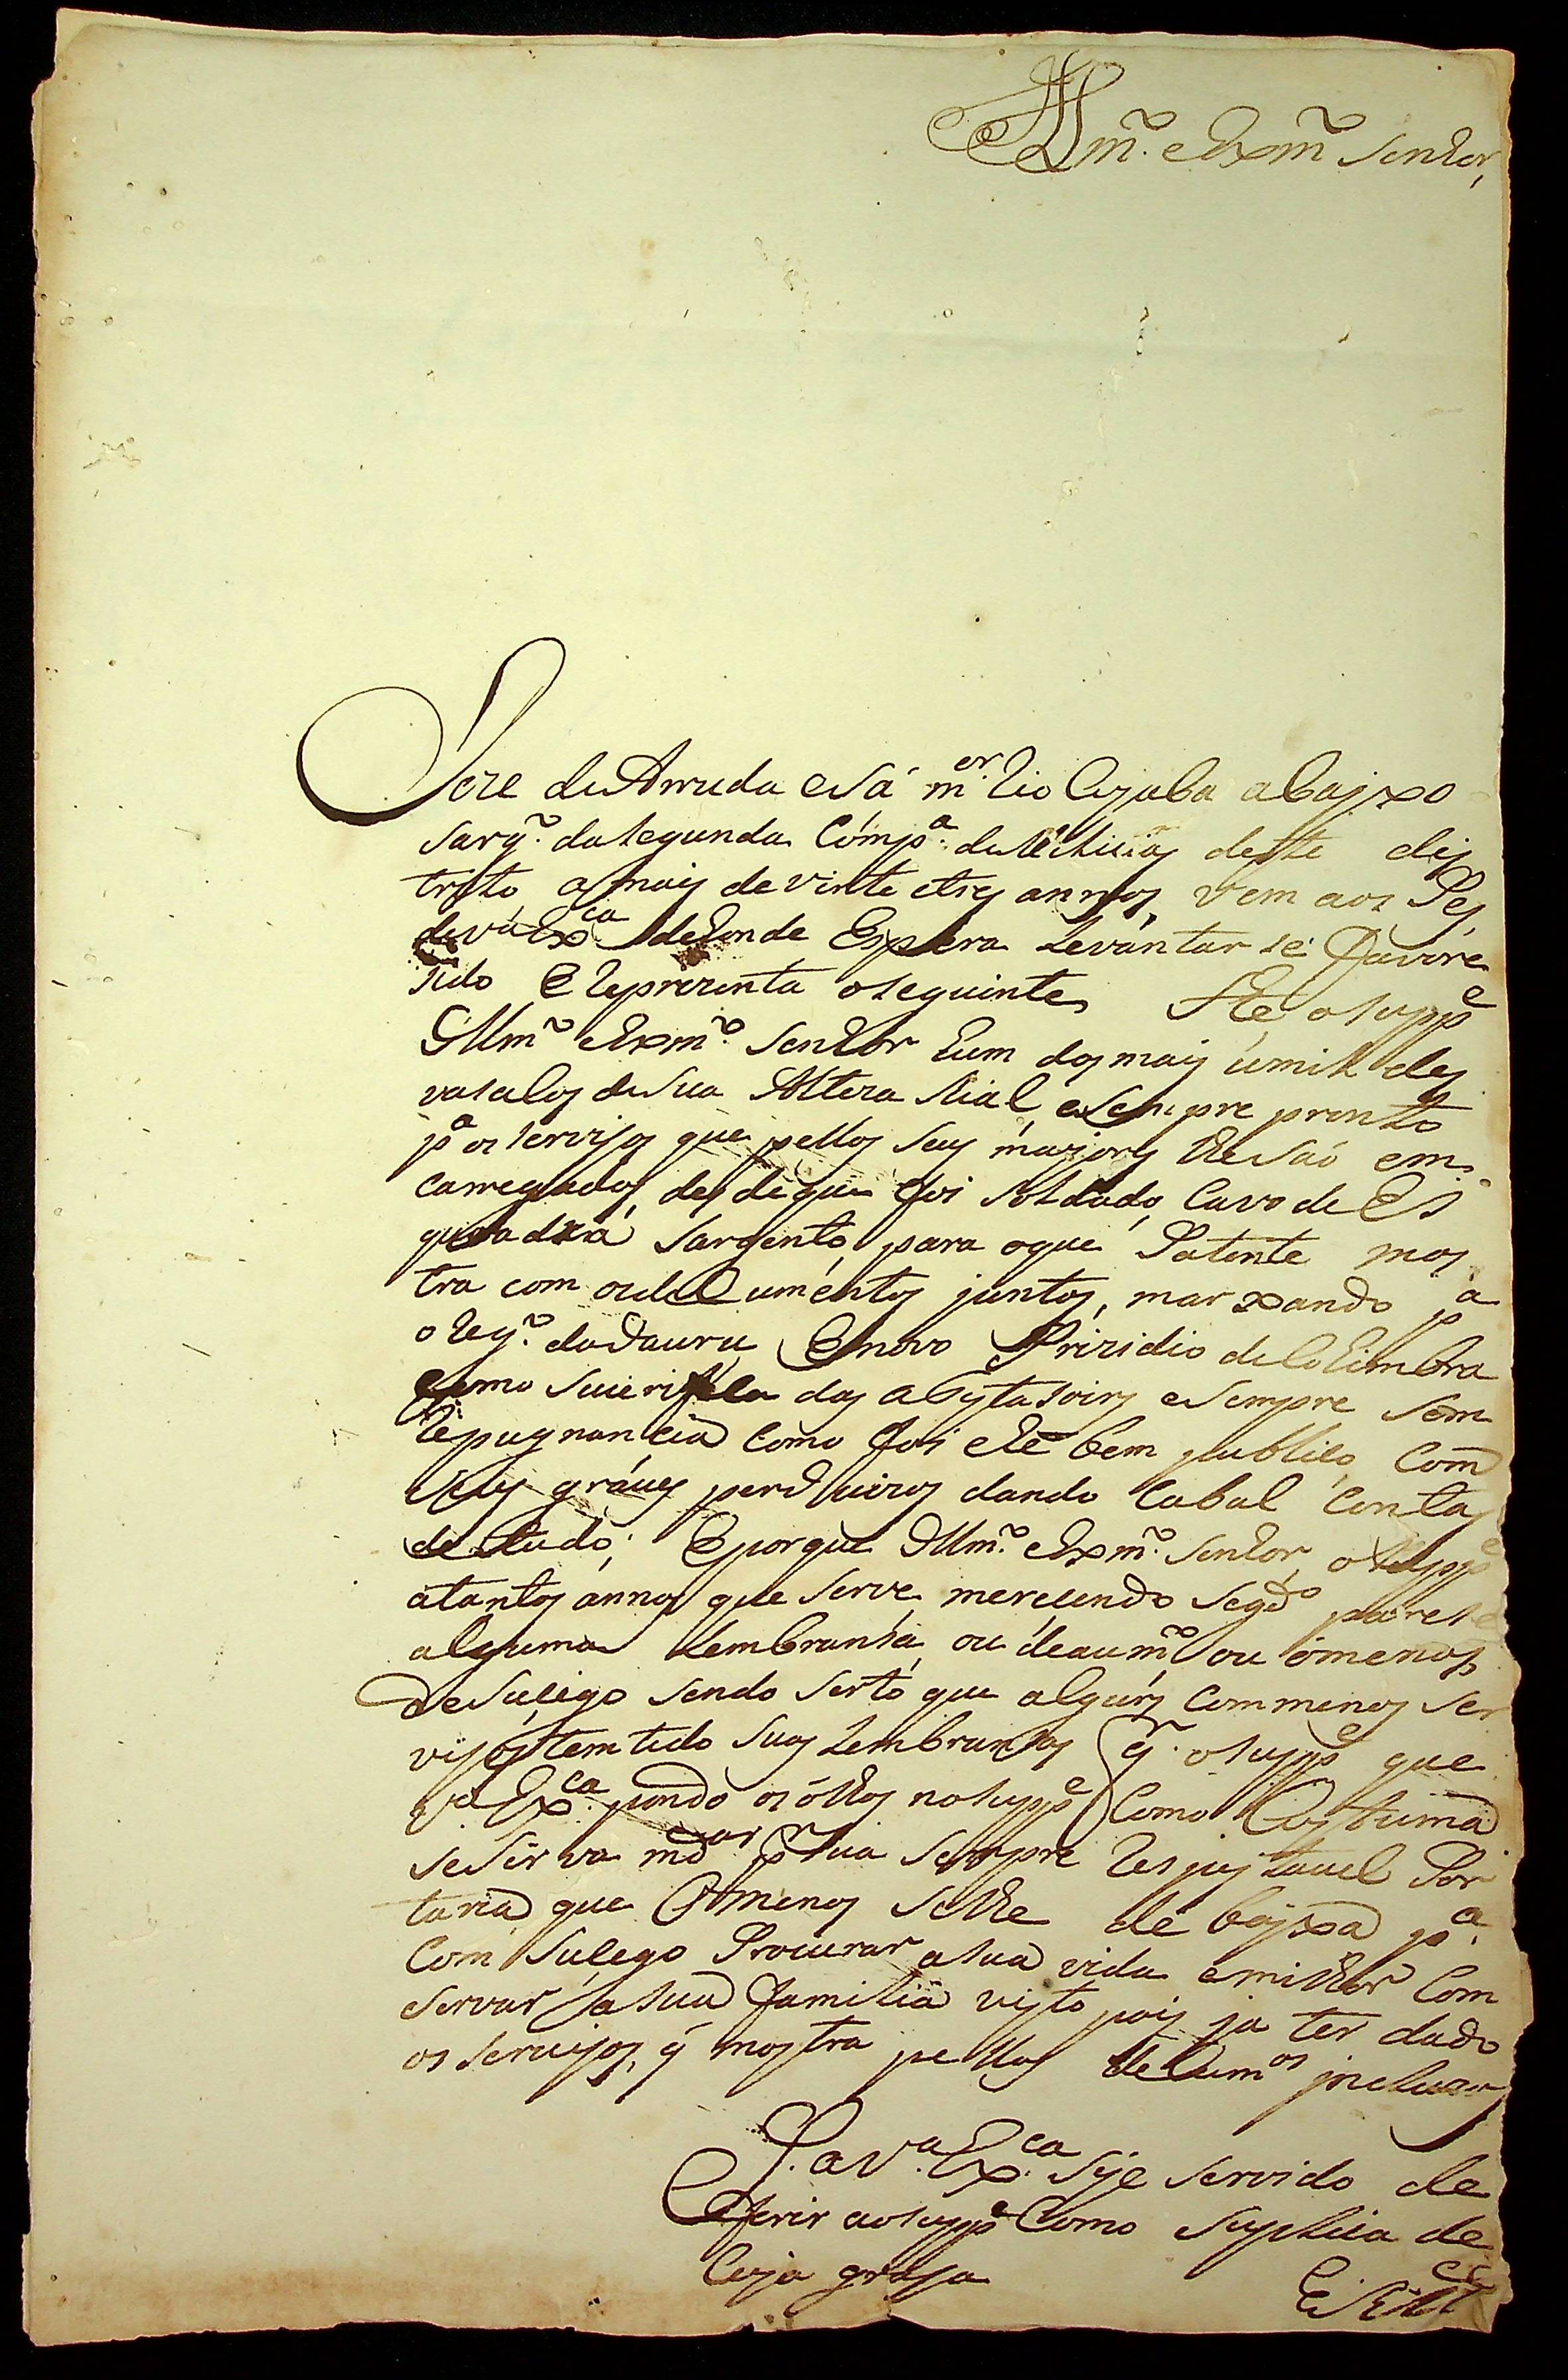 Illm.º e Exm.º Senhor,
Joze de Arruda e Sá m.ᵒʳ Rio Cuyaba abayxo
Sarg.º da segunda Comp.ª de Melicias deste dis
trito, a mais de vinte e tres annos, vem aos Pes
de V.ª Ex.ᶜᵃ dehonde Espera Levantar se Favore
sido E Reprezenta o seguinte He o supp.ᵉ
Illm.º e Exm.º Senhor hum dos mais umildes
vasalos de Sua Alteza Rial, e sempre pronto
p.ª os servisos que pellos seus mayores lhe são em
carregados, desde que foi soldado, Cavo de Es
quadra Sargento, para o que Patente mos
tra com os documentos juntos, marxando p.ª
o Reg.º do Jauru, E novo Prizidio de Cohimbra
e sempre sem
Repugnancia como foi e he bem publico, Com
graves perjuizos dando Cabal Conta
de tudo; E porque Illm.º e Exm.º Senhor, o supp.ᵉ
a tantos annos que serve, merecendo segd.º parese
alguma Lembransa, ou de aum.º ou ó menos
de Sucego sendo serto que algúns Com menos Ser
visos tem tido Suas Lembransas q.ʳ o supp.ᵉ que
V.ª Ex.ᶜᵃ pondo os ólhos no supp.ᵉ Como Custuma
se Sirva md.ᵃʳ p.ʳ sua sempre Respeitavel Por
taria que Ó menos se lhe dé bayxa p.ª
Com Sucego Procurar a sua vida e milhor Com
servar a sua Familia visto pois ja ter dado
os servisos, q̃ mostra pellos docum.ᵒˢ incluzos
P. a V.ª Ex.ᶜᵃ Seje servido de
Ferir ao supp.ᵉ Como Suplica de
Cuja grasa
E. R. M.ᶜᵉ